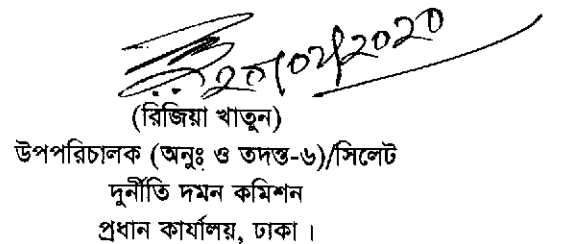 ২০/০২/২০২০
(রিজিয়া খাতুন)
উপপরিচালক (অনুঃ ও তদন্ত-৬)/সিলেট
দুর্নীতি দমন কমিশন
প্রধান কার্যালয়, ঢাকা ।